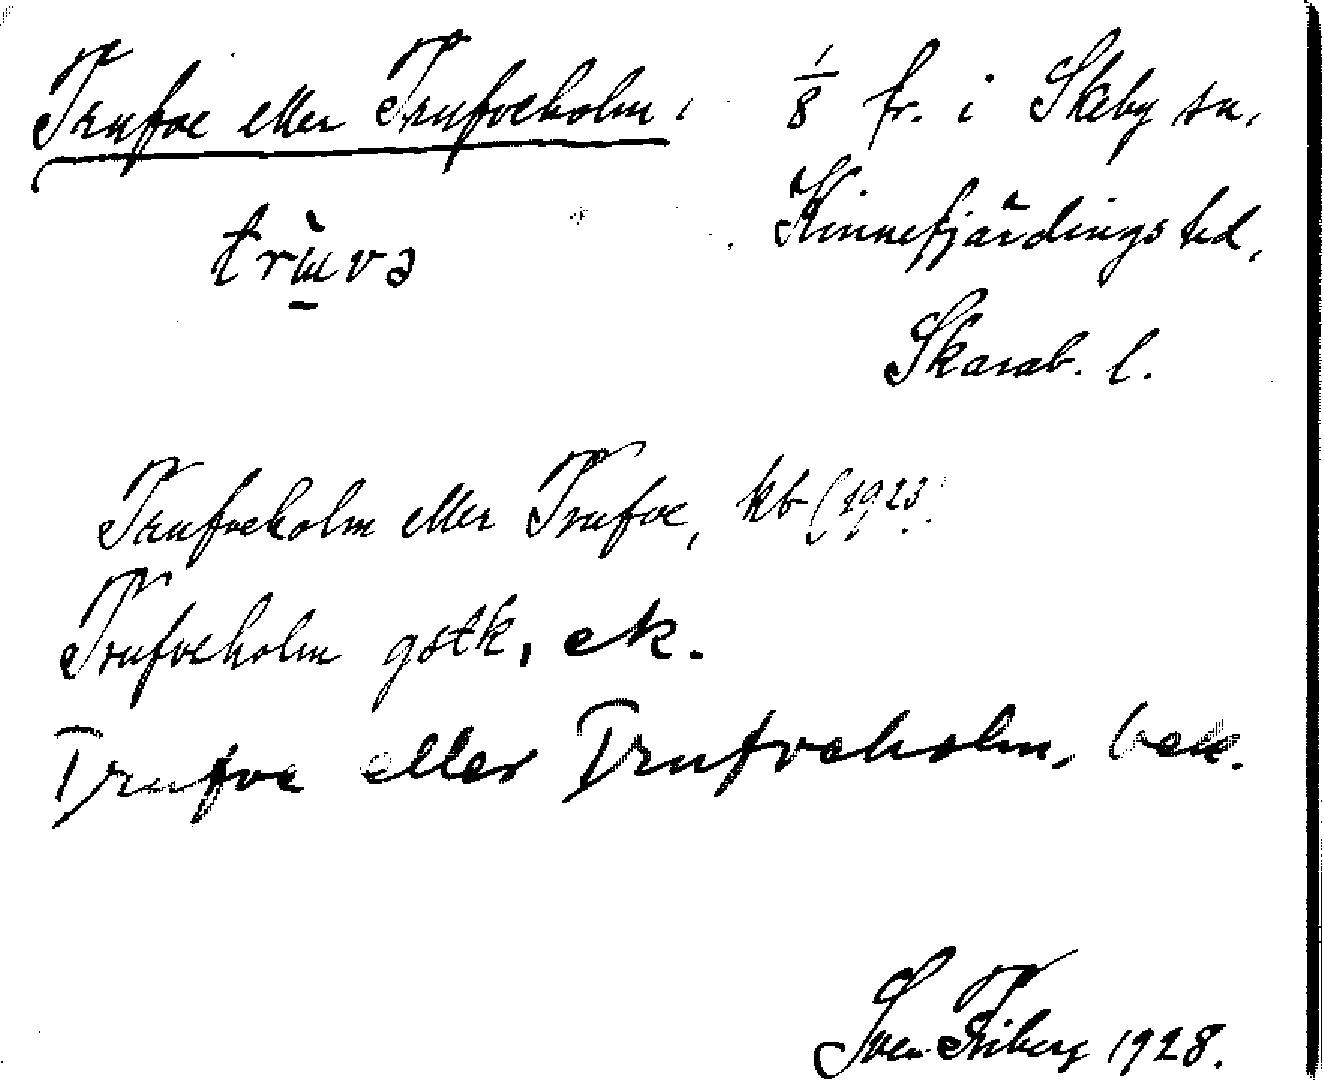 Trufve eller Trufveholm, 1/8 fr. i Skeby sn,
trɯ̀va Kinnefjärdings hd,
Skarab. l.
Trufveholm eller Trufve, kb (1923)
Trufveholm gstk, ek.
Trufve eller Trufveholm, bek.
Sven Friberg 1928.